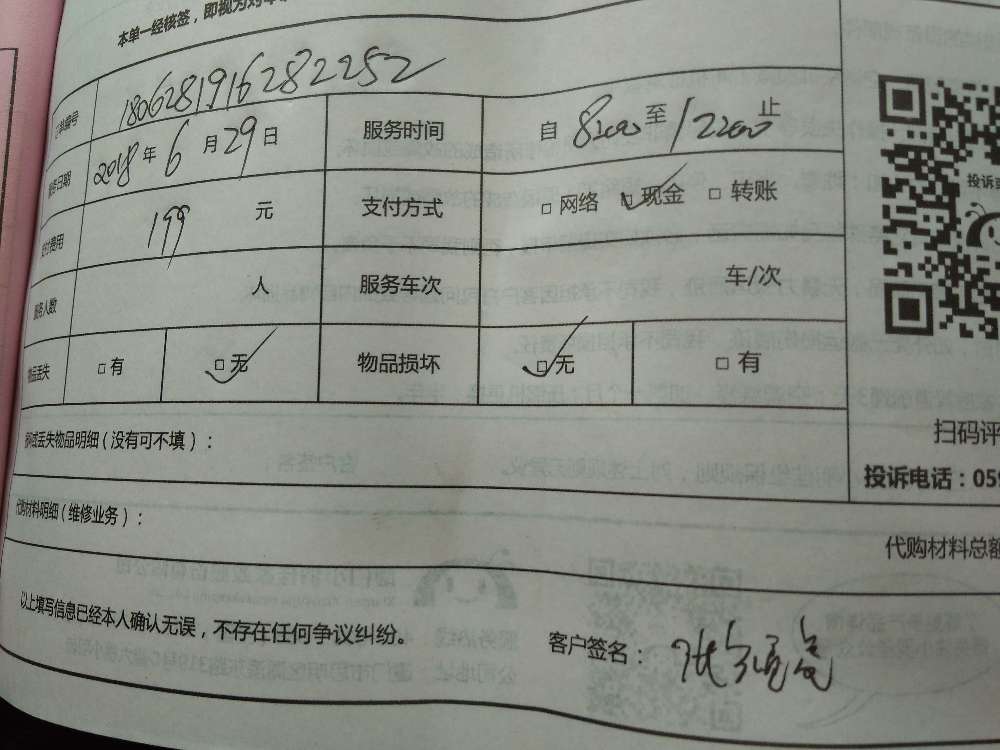 本单一经核签，即视为对本
订单编号 1806281916282252
服务日期 2018年6月29日 服务时间 自 8:00 至 12:00 止
支付费用 199 元 支付方式 □网络 ☑现金 □转账
服务人数 人 服务车次 车/次
物品丢失 □有 ☑无 物品损坏 ☑无 □有
投诉
扫码评
损坏或丢失物品明细（没有可不填）：
投诉电话：059
代购材料明细（维修业务）：
代购材料总额
以上填写信息已经本人确认无误，不存在任何争议纠纷。 客户签名：